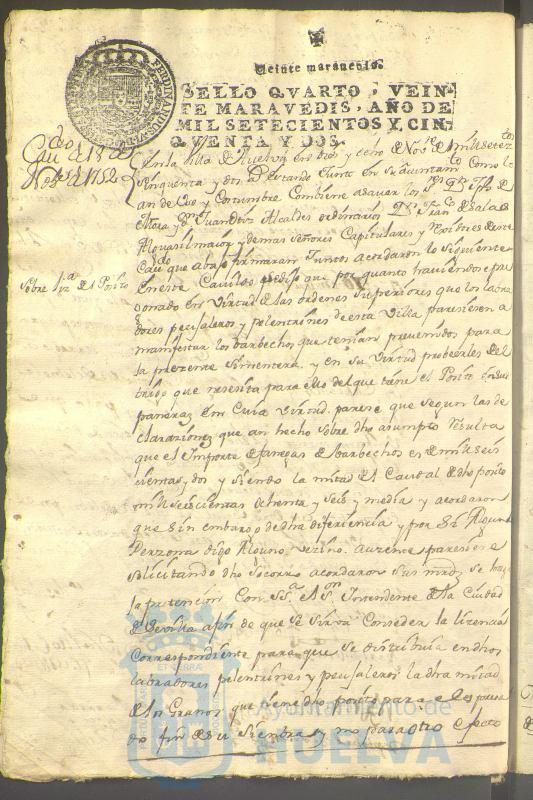 Veinte maravedis.
SELLO QVARTO, VEIN-
TE MARAVEDIS, AÑO DE
MIL SETECIENTOS Y CIN-
QVENTA Y DOS.
Cavdo 18 de
Nore de 1752
En la Villa de Huelva en dies y ocho de Nove de mil setezos
sinquenta y dos estando Junto en su Aiuntamto Como lo
an de Uso y Costumbre Combiene asaver los
Mora y Dn Juan Alcaldes ordinarios Dn Franco de Salas
Alguasil maior y demas señores Capitulares y Rexidores de este
Cavdo que abajo firmaram Juntos acordaron lo siguiente
Sobre tria del Posito
En este Cavildo se dijo que por quanto haviendose pre
sionado en virtud de las ordenes superiores que los labra
dores pegujaleros y pelentrines de esta Villa paresiesen a
manifestar los barbechos que tenian prevenidos para
la presente sementera y en su virtud probeerles del
trigo que nesesita para ello del que tiene el Posito en sus
paneras en Cuia virtud parese que segun las de
claraziones que an hecho sobre dho asumpto resulta
que el Importe de fanegas de barbechos es de mil seis
cientas y dos y siendo la mitad del Caudal de dho posito
mil seiscientas ochenta y seis y media y acordaron
que sin embargo de dha diferiencia y por si Alguna
Perzona digo Alguno vezino aurence paresiere
solicitando dho socorro acordaron sus mrds se haga
la pretencion Con Sa el Sr Intendente de la Ciudad
de Sevilla afin de que se sirva Conseder la licencia
Correspondiente para que se distribuia en dhos
labradores pelentrines y pegujaleros la dha mitad
de los Granos que tiene dho posito para el expresa
do fin de su siembra y no para otro efecto
Ayuntamiento de
HUELVA